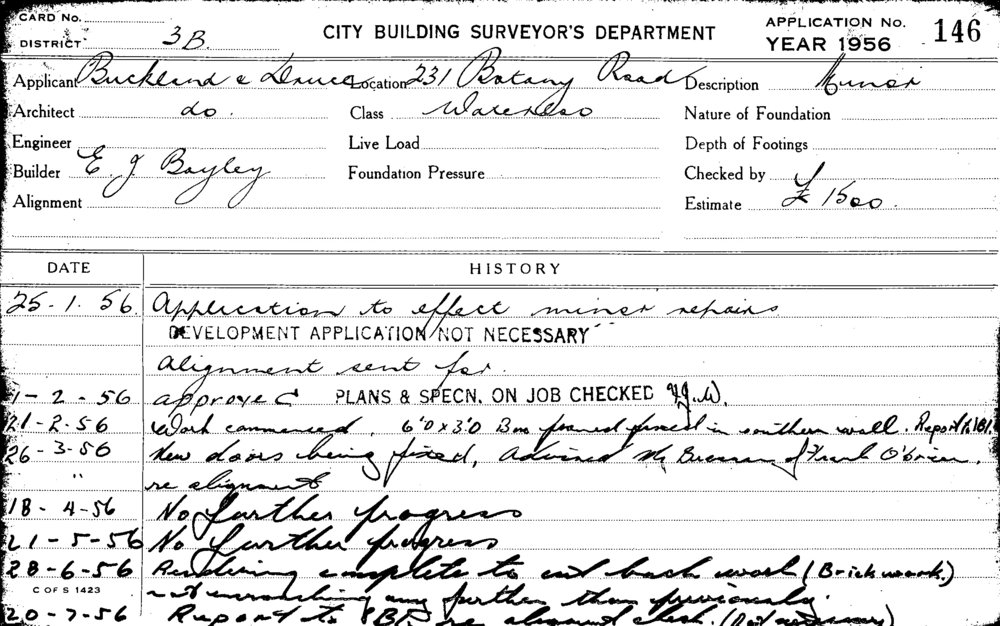 CARD No.
DISTRICT 3B.
CITY BUILDING SURVEYOR'S DEPARTMENT
APPLICATION No.
YEAR 1956
146
Applicant Buckland & Druce Location 231 Botany Road Description Minor
Architect do. Class Waterloo Nature of Foundation
Engineer Live Load Depth of Footings
Builder E J Bayley Foundation Pressure Checked by
Alignment Estimate £ 1500.
DATE HISTORY
25-1-56. Application to effect minor repairs
DEVELOPMENT APPLICATION NOT NECESSARY
Alignment sent for.
1-2-56 approved PLANS & SPECN. ON JOB CHECKED
21-2-56 Work commenced. 6'0 x 3'0 in southern wall. Report
26-3-56 New doors being fixed, Advised Mr Brennan of Frank O'brien.
" re alignment
18-4-56 No further progress
21-5-56 No further progress
28-6-56 Rendering complete to cut back work (Brickwork.)
C OF S 1423 not encroaching any further than previously.
20-7-56 Report to re alignment check. (Not necessary)